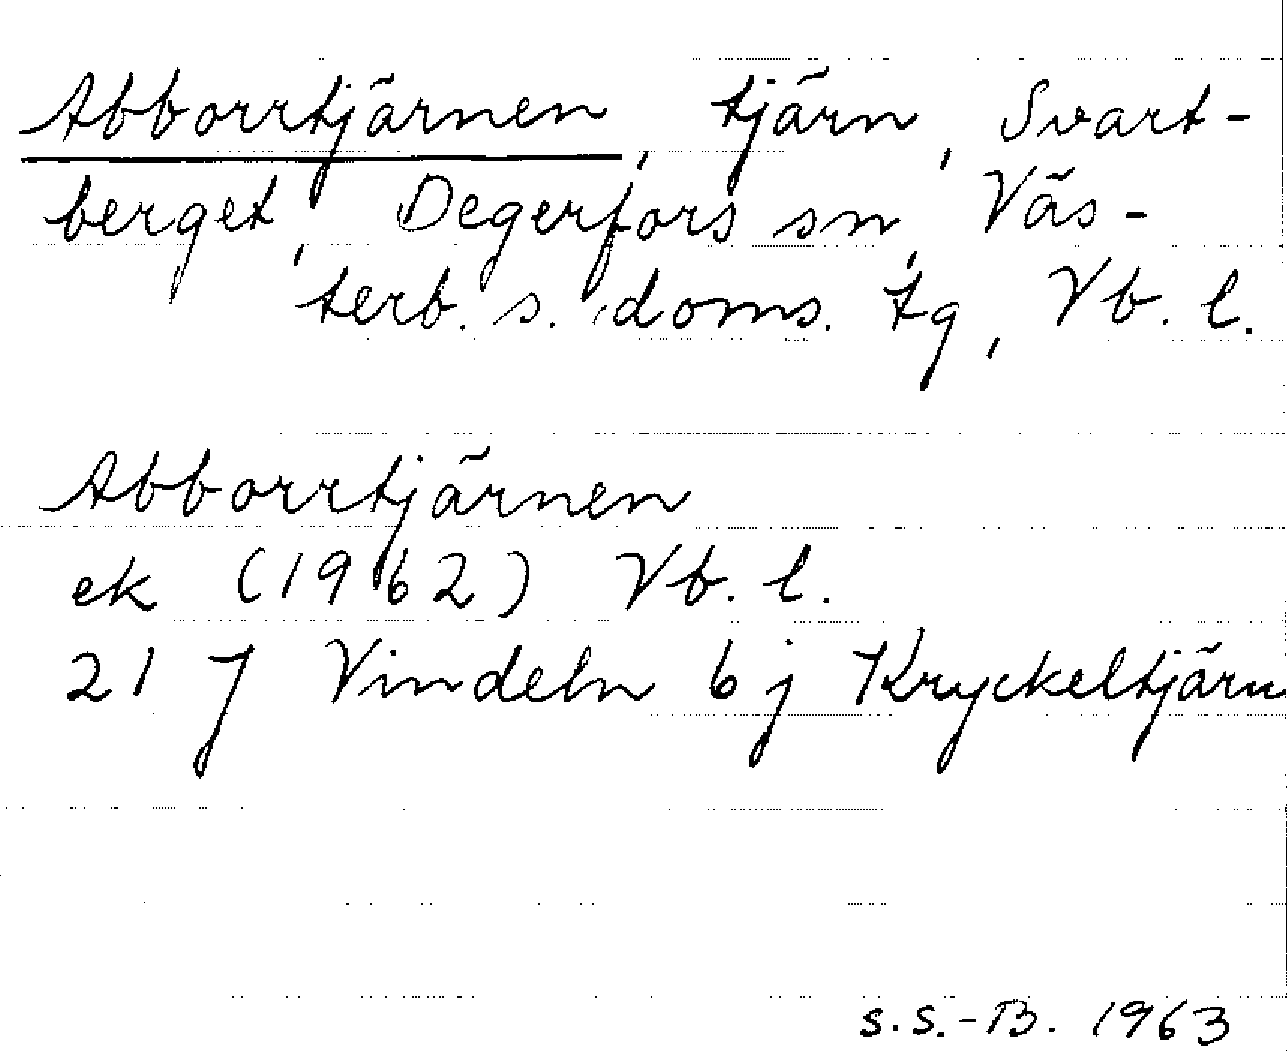 Abborrtjärnen, tjärn, Svart-
berget, Degerfors sn, Väs-
terb. s. doms. tg, Vb. l.
Abborrtjärnen
ek (1962) Vb. l.
21 J Vindeln 6 j Kryckeltjärn
S.S.-B. 1963